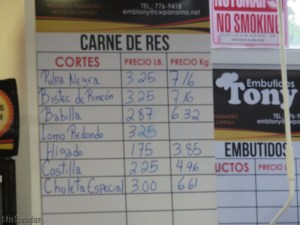 TEL, 776-9418
embtony@cwpanama.net
CARNE DE RES
CORTES PRECIO LB. PRECIO Kg.
Pulpa Negra 3.25 7.16
Bistec de Rincón 3.25 7.16
Babilla 2.87 6.32
Lomo Redondo 3.25
Higado 1.75 3.85
Costilla 2.25 4.96
Chuleta Especial 3.00 6.61
NO SMOKING
Embutidos
Tony
TEL, 776-
embtony@cwpa
EMBUTIDOS
UCTOS PRECIO LB.